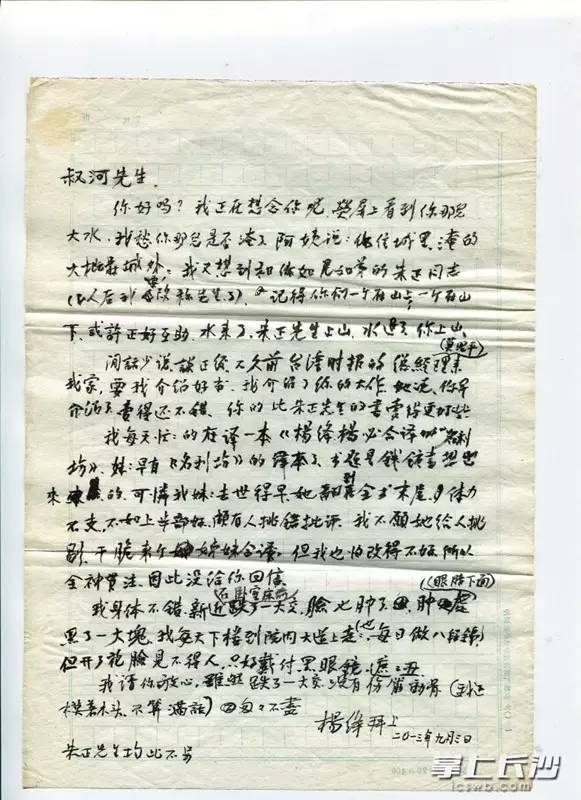 叔河先生,
你好吗?我正在想念你呢,熒屏上看到你那里
大水,我愁你那里是否淹了,阿姨说:他住城里,淹的
大概是城外。我又想到和你如兄如弟的朱正同志
(以人后我 改称先生了),记得你们一个在山上,一个在山
下,或許正好互助,水来了,朱正先生上山,水退了你上山。
閒話少说,談正经,不久前台湾时报的總經理来
(莫昭平)
我家,要我介绍好书,我介绍了你的大作,她说,你早
介绍了,賣得还不錯,你的比朱正先生的書賣得更好些
我每天忙的在译一本《楊绛楊必合译的"名利
坊》,妹早有《名利坊》的译本了,书题是錢锺書想出
来的,可憐我妹去世得早,她翻到全书末尾,体力
不支,不如上半部好,頗有人挑錯批评,我不願她给人挑
剔,干脆来个姊妹合译,但我也怕改得不好,所以
全神貫注,因此没给你回信。
我身体不错,新近在臥室床前跌了一大交,臉也肿了,肿處
(眼睛下面)
黑了一大塊,我每天下楼到院内大道上走走,也每日做八段錦,
但开了花臉見不得人,只好戴付黑眼鏡,遮遮丑
我请你放心,雖然跌了一大交,没有伤筋動骨(到处
摸着木头,不算滿話)匆匆不盡
楊绛拜上
二〇一三年九月三日
朱正先生均此不另
掌上长沙
icswb.com